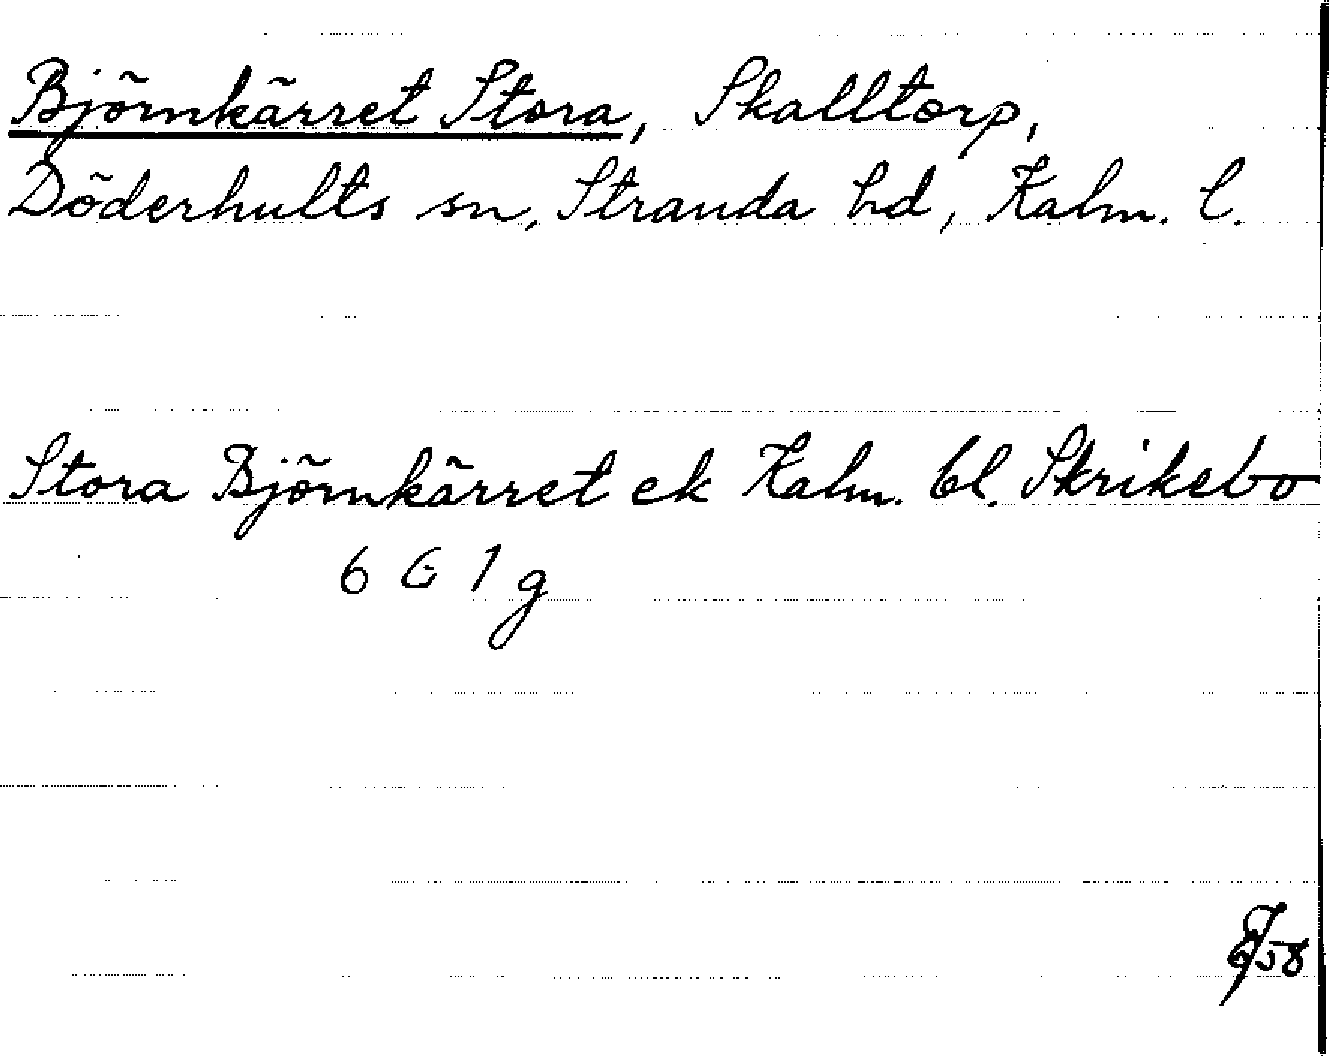 Björnkärret Stora, Skalltorp,
Döderhults sn, Stranda hd, Kalm. l.
Stora Björnkärret ek Kalm. bl. Skrikebo
6 G 1 g
58